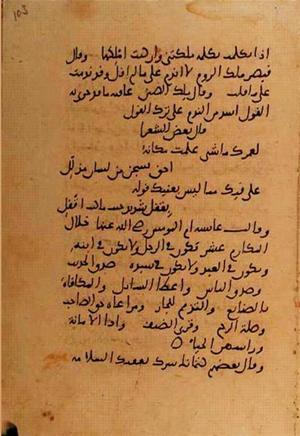 103
اذا تكلمت بكلمة ملكتني وان هي املكها وقال
قيصر ملك الروم لا اندم على ما لم اقل وقد ندمت
على ما قلت وقال ملك الصين عاقبة ما
القول اشد من الندم على ترك القول
قال بعض الشعرا
لعمرك ما شي علمت مكانه
احق بسجن من لسان مذلل
على فيك مما ليس يعنيك قوله
بقفل شديد حيث ما كنت اقفل
وقالت عائشة ام المومنين رضي الله عنها خلال
المكارم عشر تكون في الرجل ولا تكون في ابنه
وتكون في العبد ولا تكون في سيده صدق الحديث
وصدق الناس واعطا السائل والمكافاة
بالصنايع والتذمم للجار ومراعاة حق الصاحب
وصلة الرحم وقرى الضيف واداء الامانة
وراسهن الحياء
وقال بعضهم سرك السلامة